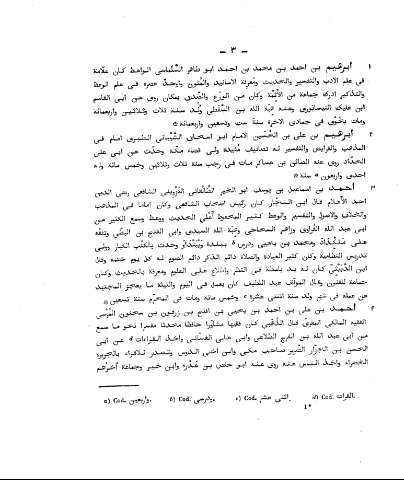 - ٣ -
١ ابرهيم بن احمد بن محمد بن احمد ابو طاهر السَّلَماسى الواعظ كان علامة
فى علم الادب والتفسير والحديث ومعرفة الاسانيد والمتون واوحد عصره فى علم الوعظ
والتذكير ادرك جماعة من الأئمّة وكان من الورع والتقدّى بمكان روى عن ابى القاسم
ابن عليك النيسابورى وعنه هبة الله بن السَّقَطى ولد سنة ثلاث وثلاثين واربعمائة
ومات بخُوَىّ فى جمادى الآخرة سنة ست وتسعين واربعمائة *
٢ ابرهيم بن على بن الحُسَين الامام ابو اسحاق الشَّيْبانى الطبرى امام فى
المذهب والفرايض والتفسير له تصانيف مُفيدة ولى قضاء مكة وحدث عن ابى على
الحدّاد روى عنه الصائن بن عساكر مات فى رجب سنة ثلاث وثلاثين وخمس مائة وله
احدى واربعون a سنة *
٣ احمد بن اسماعيل بن يوسف ابو الخير الطَّالقانى القَزْوينى الشافعى رضى الدين
احد الأعلام قال ابن النجّار كان رئيس اصحاب الشافعى وكان اماما فى المذهب
والخلاف والاصول والتفسير والوعظ كثير المحفوظ أَمْلَى الحديث ووعظ وسمع الكثير من
ابى عبد الله الفُراوى وزاهر الشحامى وهبة الله السيدى وابى الفتح بن البَطّى وتفقّه
على مَلِكْداذ ومحمد بن يحيى ودرس b ببلده وببَغْداد وحدث بالكُتب الكبار وولى
تدريس النظامية وكان كثير العبادة والصلاة دائم الذكر دائم الصوم له كل يوم ختمة وقال
ابن الدُّبَيْثى كان له يد باسطة فى النظر واطّلاع على العلوم ومعرفة بالحديث وكان
جماعة للفنون وقال الموفّق عبد اللطيف كان يعمل فى اليوم والليلة ما يعجز المجتهد
عن عمله فى شهر ولد سنة اثنتى عشرة c وخمس مائة ومات فى المحرّم سنة تسعين *
٤ احمد بن على بن احمد بن يحيى بن افلح بن زرقون بن سحنون المُرْسى
الفقيه المالكى المقرئ قال الذَّهَبى كان فقيها مشاورا حافظا محدثا مفسرا نحويا سمع
من ابى عبد الله بن الفرج الطلاعى وابى على الغسانى واخذ القراءات d عن ابى
الحسن بن الجزار الضرير صاحب مكى وابن اخى الدوش وتصدر للاقراء بالجزيرة
الخضراء واخذ الناس عنه روى عنه ابو حفص بن عُذْرة وابن خير وجماعة آخرهم
a) Cod. واربعين. b) Cod. ودرسى. c) Cod. اثنى عشر. d) Cod. القرات.
1*